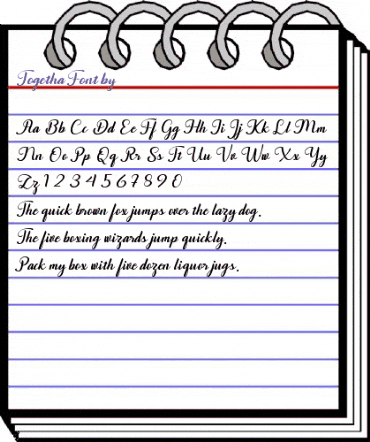 Togetha Font by
Aa Bb Cc Dd Ee Ff Gg Hh Ii Jj Kk Ll Mm
Nn Oo Pp Qq Rr Ss Tt Uu Vv Ww Xx Yy
Zz 1 2 3 4 5 6 7 8 9 0
The quick brown fox jumps over the lazy dog.
The five boxing wizards jump quickly.
Pack my box with five dozen liquor jugs.